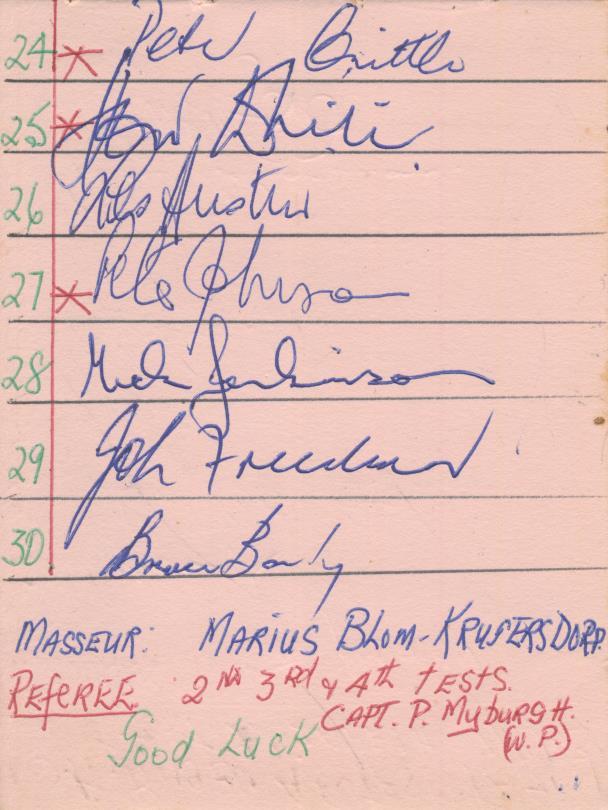 24 * Peter Crittle
25 *
26 Les Austin
27 * Pete Johnson
28 Mick Jenkinson
29 John Freedman
30 Bruce
MASSEUR: MARIUS BLOM - KRUGERSDORP.
REFEREE 2ND 3RD & 4TH TESTS.
CAPT. P. MYBURGH.
(W.P.)
Good Luck